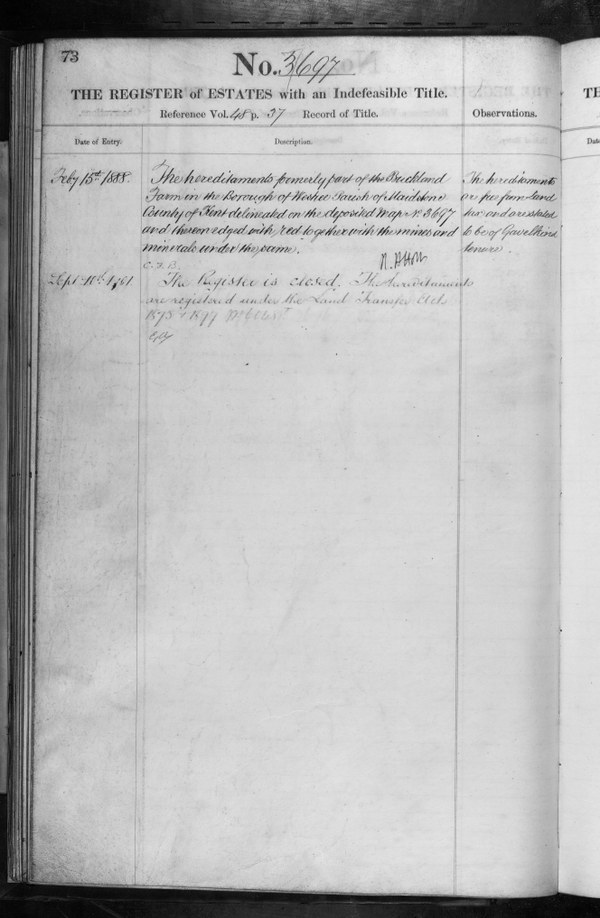 73
No. 3697
THE REGISTER of ESTATES with an Indefeasible Title.
Reference Vol. 48 p. 37 Record of Title.
Observations.
Date of Entry.
Description.
Feby 15th 1888.
The hereditaments formerly part of the Buckland
Farm in the Borough of Westree Parish of Maidstone
County of Kent delineated on the deposited Map No 3697
and thereon edged with red together with the mines and
minerals under the same.
The hereditaments
are free from Land
tax and are stated
to be of Gavelkind
tenure.
Sept 10th 1901
The Register is closed. The hereditaments
are registered under the Land Transfer Acts
1875 & 1897
TH
Date